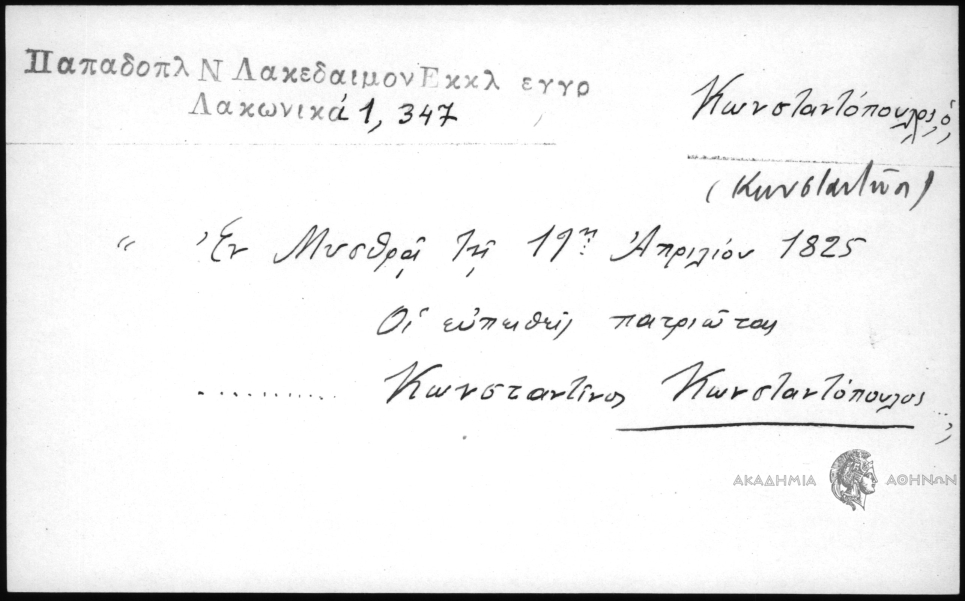 Παπαδοπλ Ν Λακεδαιμον Εκκλ εγγρ
Λακωνικά 1, 347
Κωνσταντόπουλος, ὁ
(Κωνσταντῖνος)
“ Ἐν Μυσθρᾷ τῇ 19ῃ Ἀπριλίου 1825
Οἱ εὐπειθεῖς πατριῶται
.............. Κωνσταντῖνος Κωνσταντόπουλος ... ,,
ΑΚΑΔΗΜΙΑ ΑΘΗΝΩΝ